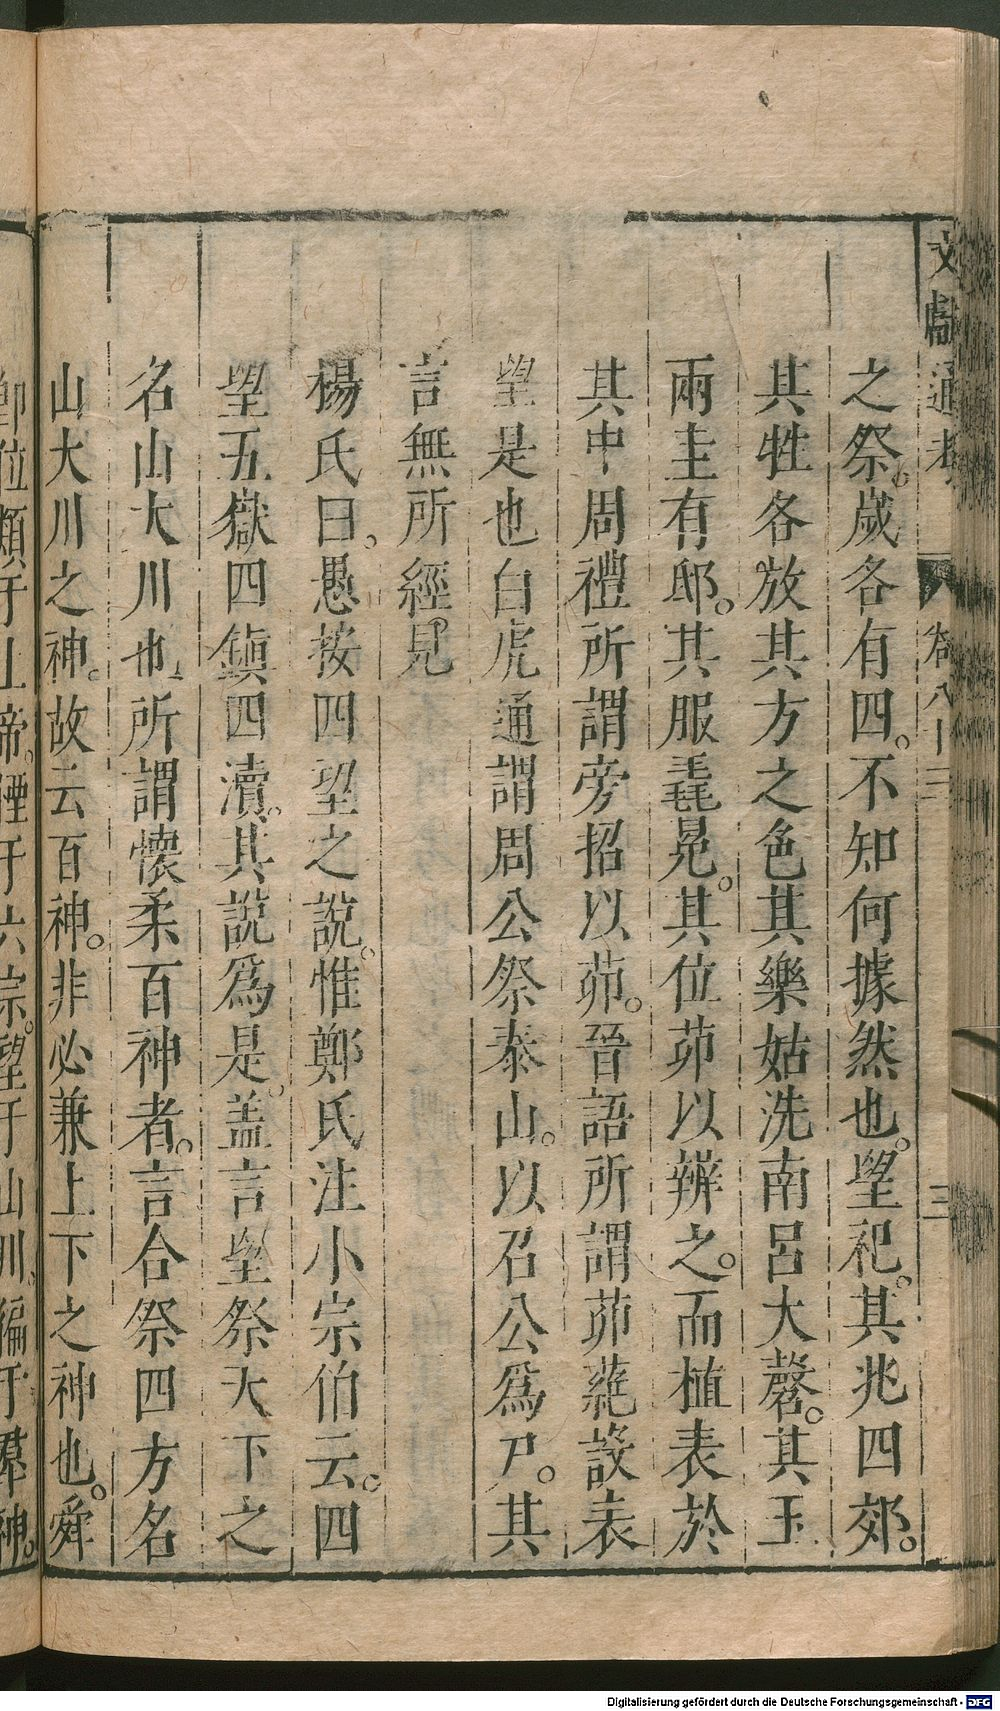 文獻通考 卷八十三 三
之祭。歲各有四。不知何據然也。望祀。其兆四郊。
其牲各放其方之色其樂姑洗南呂大磬。其玉
兩圭有邸。其服毳冕。其位茆以辨之。而植表於
其中周禮所謂旁招以茆。晉語所謂茆蕝設表
望是也白虎通謂周公祭泰山。以召公爲尸。其
言無所經見
楊氏曰。愚按四望之說。惟鄭氏注小宗伯云。四
望五嶽四鎮四瀆。其說爲是。蓋言望祭天下之
名山大川也所謂懷柔百神者。言合祭四方名
山大川之神。故云百神。非必兼上下之神也。舜
卽位類于上帝。禋于六宗。望于山川。徧于羣神。
Digitalisierung gefördert durch die Deutsche Forschungsgemeinschaft - DFG